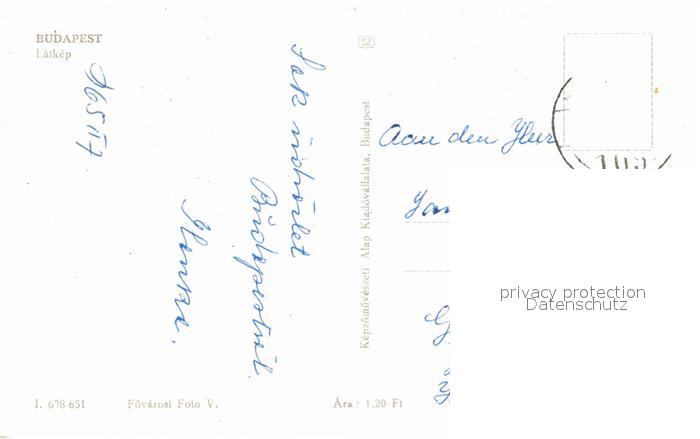 BUDAPEST
Látkép
965 II 7
Sok üdvözlet
Budapestről
Ilonka.
I. 678-651
Fővárosi Foto V.
Ára: 1.20 Ft
Képzőművészeti Alap Kiadóvállalata, Budapest
SZ
Aan den Heer
privacy protection
Datenschutz